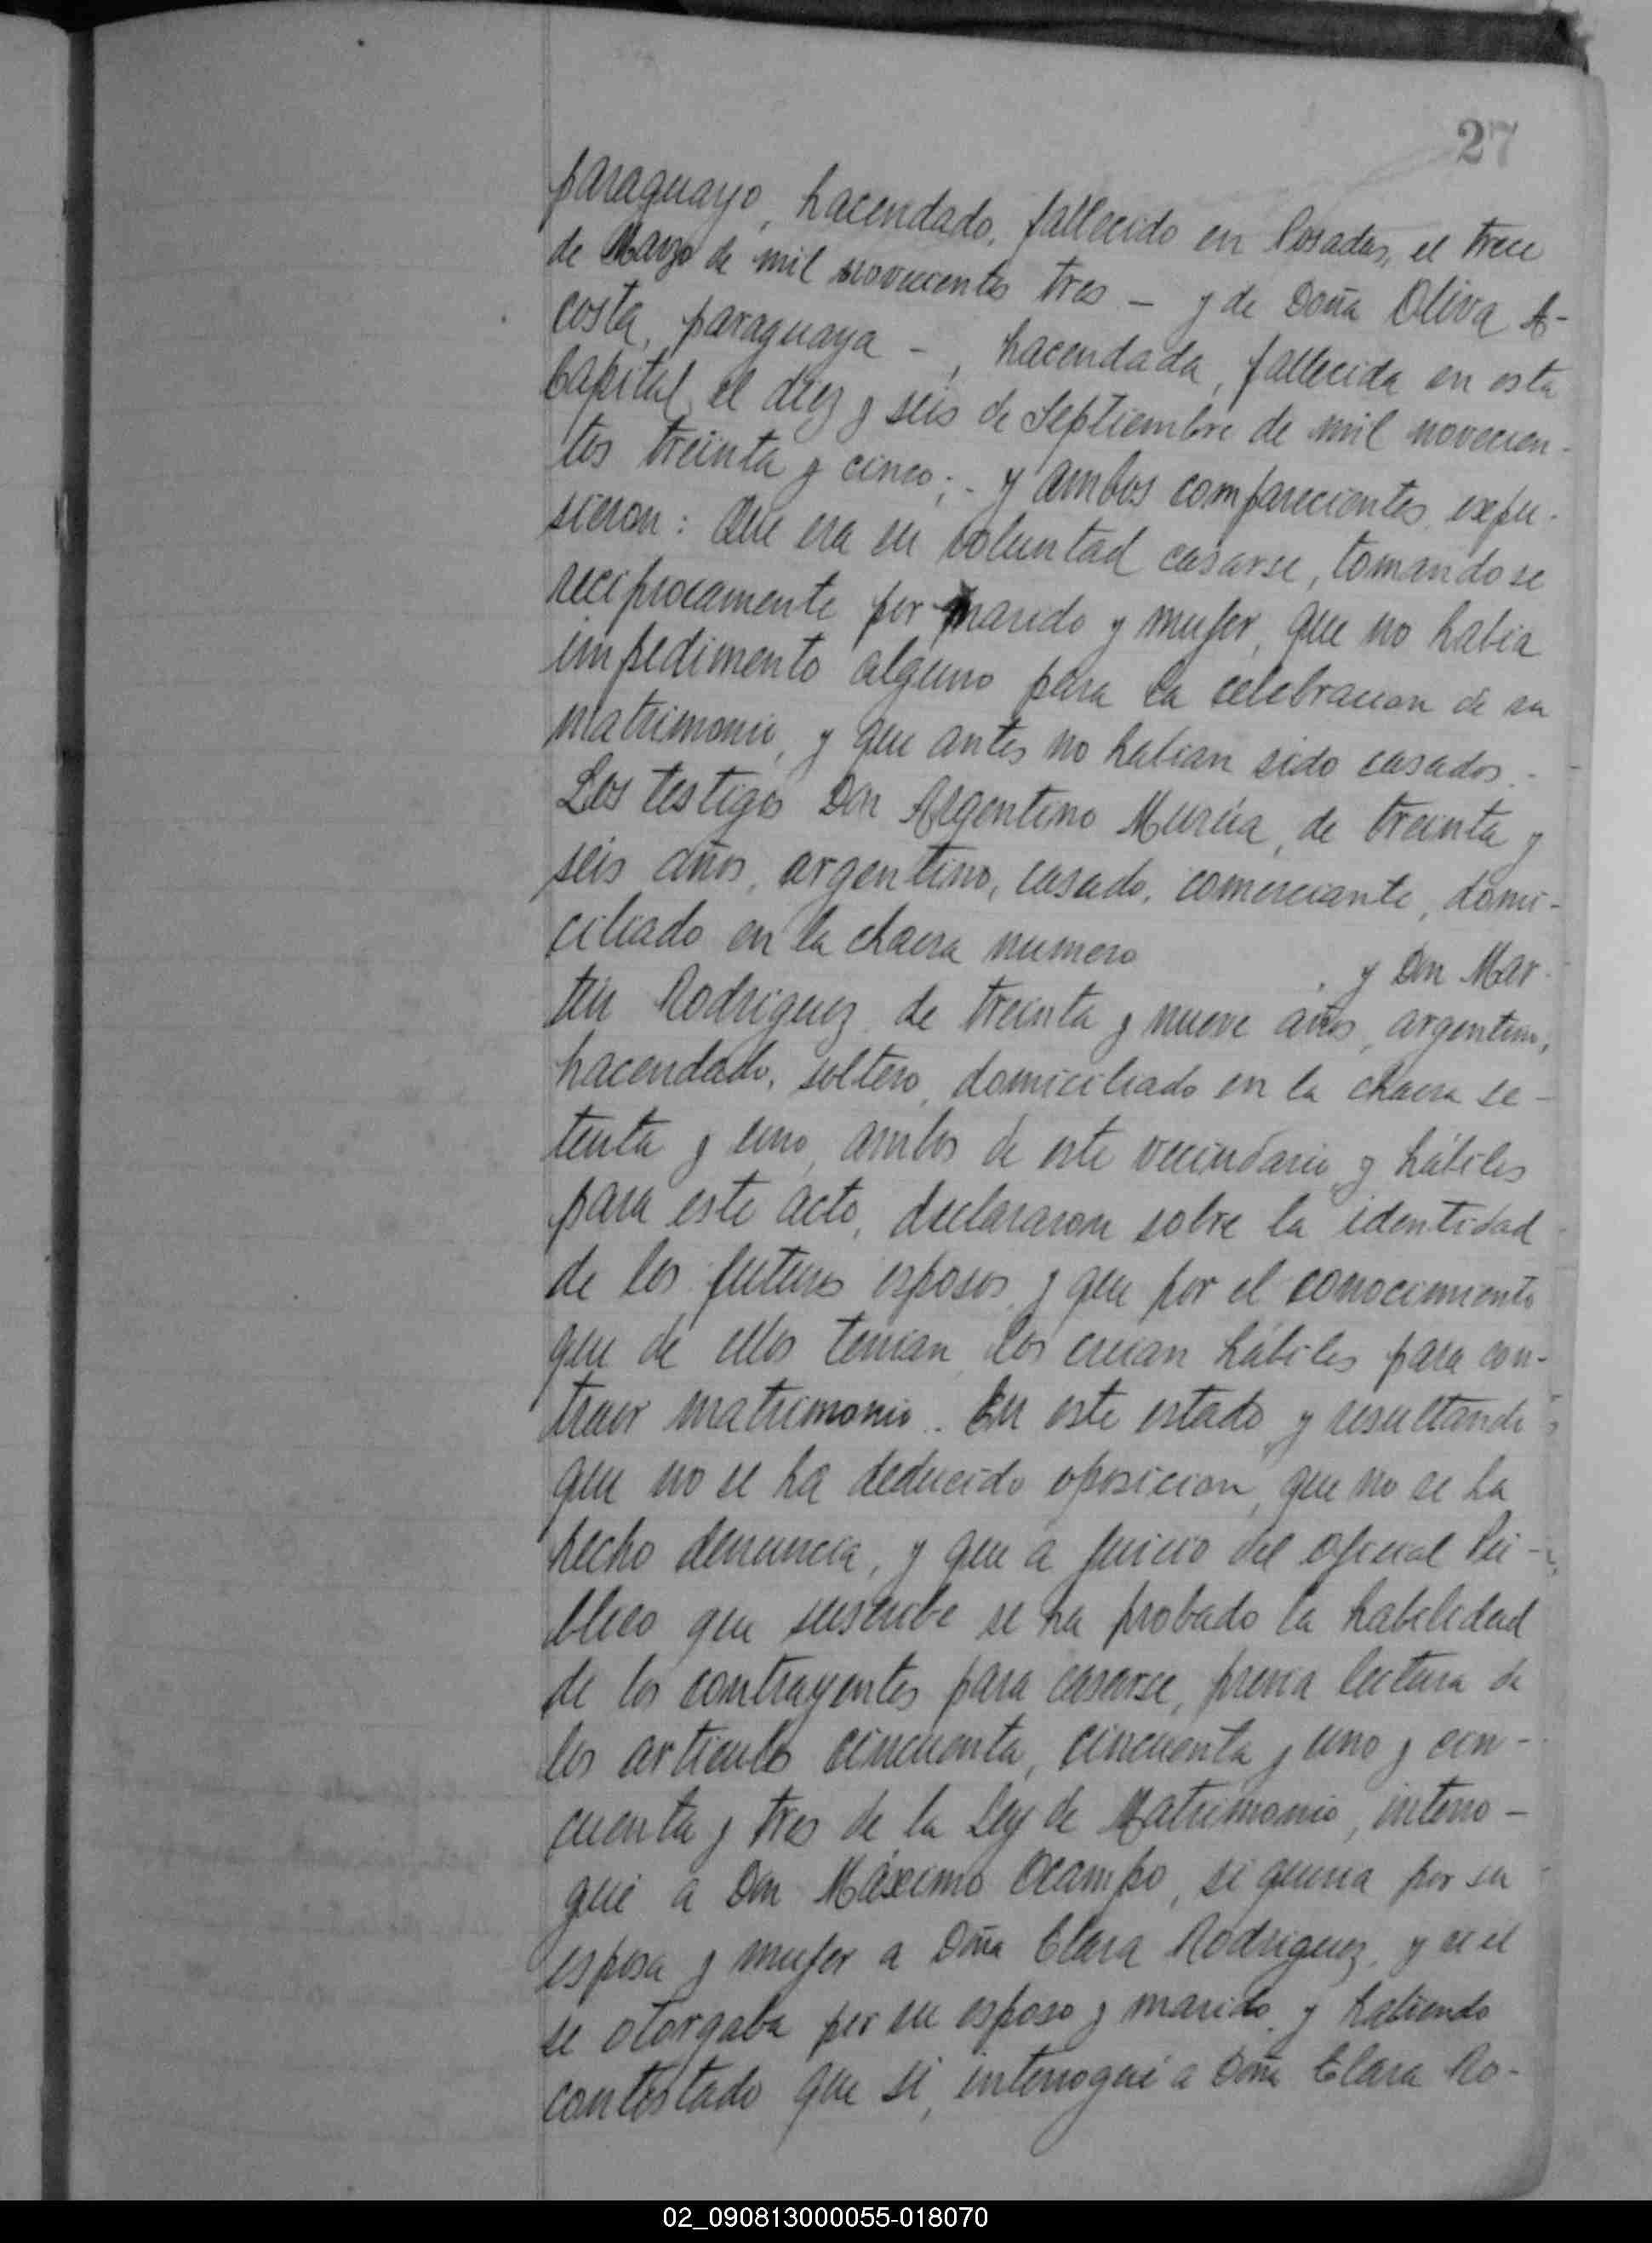 27
paraguayo, hacendado, fallecido en Posadas, el trece
de Mayo de mil novecientos tres – y de Doña Oliva A-
costa, paraguaya – , hacendada, fallecida en esta
Capital, el diez y seis de Septiembre de mil novecien-
tos treinta y cinco; - y ambos comparecientes expu-
sieron: Que era su voluntad casarse, tomandose
reciprocamente por marido y mujer, que no habia
impedimento alguno para la celebracion de su
matrimonio, y que antes no habian sido casados.-
Los testigos Don Argentino Murúa, de treinta y
seis años, argentino, casado, comerciante, domi-
ciliado en la chacra numero , y Don Mar-
tin Rodriguez, de treinta y nueve años, argentino,
hacendado, soltero, domiciliado en la chacra se-
tenta y uno, ambos de este vecindario y hábiles
para este acto, declararon sobre la identidad
de los futuros esposos, y que por el conocimiento
que de ellos tenian, los creian hábiles para con-
traer matrimonio.. En este estado, y resultando
que no se ha deducido oposicion, que no se ha
hecho denuncia, y que a juicio del oficial Pú-
blico que suscribe se ha probado la habilidad
de los contrayentes para casarse, previa lectura de
los articulos cincuenta, cincuenta y uno y cin-
cuenta y tres de la Ley de Matrimonio, interro-
gué a Don Máximo Ocampo, si queria por su
esposa y mujer a Doña Clara Rodriguez, y si él
se otorgaba por su esposo y marido, y habiendo
contestado que si, interrogué a Doña Clara Ro-
02_090813000055-018070